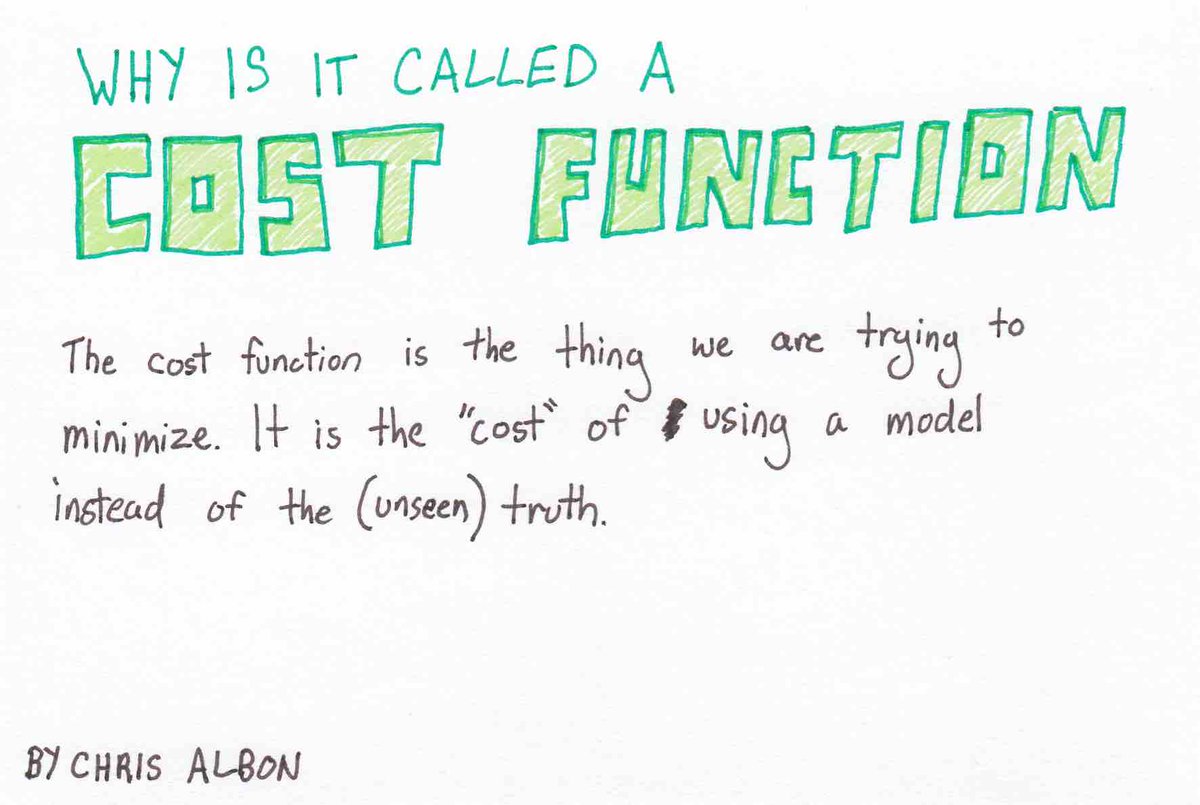 WHY IS IT CALLED A
COST FUNCTION
The cost function is the thing we are trying to
minimize. It is the "cost" of using a model
instead of the (unseen) truth.
BY CHRIS ALBON